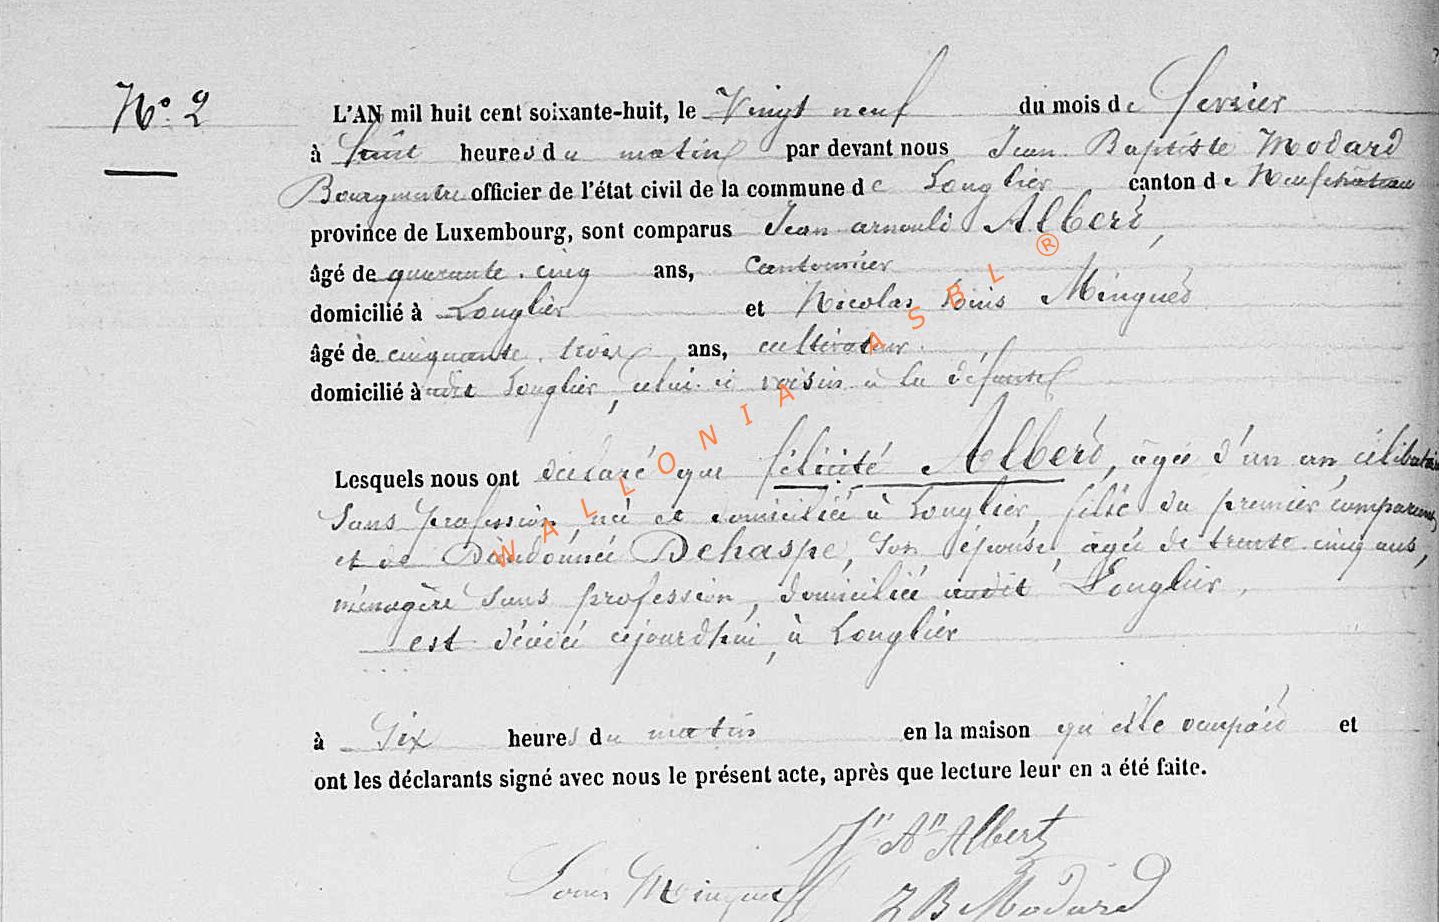 N° 2
L'AN mil huit cent soixante-huit, le Vingt neuf du mois de fevrier
à huit heures du matin par devant nous Jean Baptiste Modard
Bourgmestre officier de l'état civil de la commune de Longlier canton de Neufchateau
province de Luxembourg, sont comparus Jean arnould Albert,
âgé de quarante-cinq ans, Cantonnier
domicilié à Longlier et Nicolas Louis Mingues
âgé de cinquante trois ans, cultivateur
domicilié à udit Longlier, celui-ci voisin à la défunte
Lesquels nous ont déclaré que félicité Albert, âgée d'un an, célibataire
sans profession, née et domiciliée à Longlier, fille du premier comparant,
et de Dieudonnée Dehaspe, son épouse, âgée de trente cinq ans,
ménagère sans profession, domiciliée audit Longlier,
est décédée cejourd'hui, à Longlier
à Six heures du matin en la maison qu'elle occupait et
ont les déclarants signé avec nous le présent acte, après que lecture leur en a été faite.
Jn An Albert
Louis Mingues J B Modard
WALLONIA ASBL ®